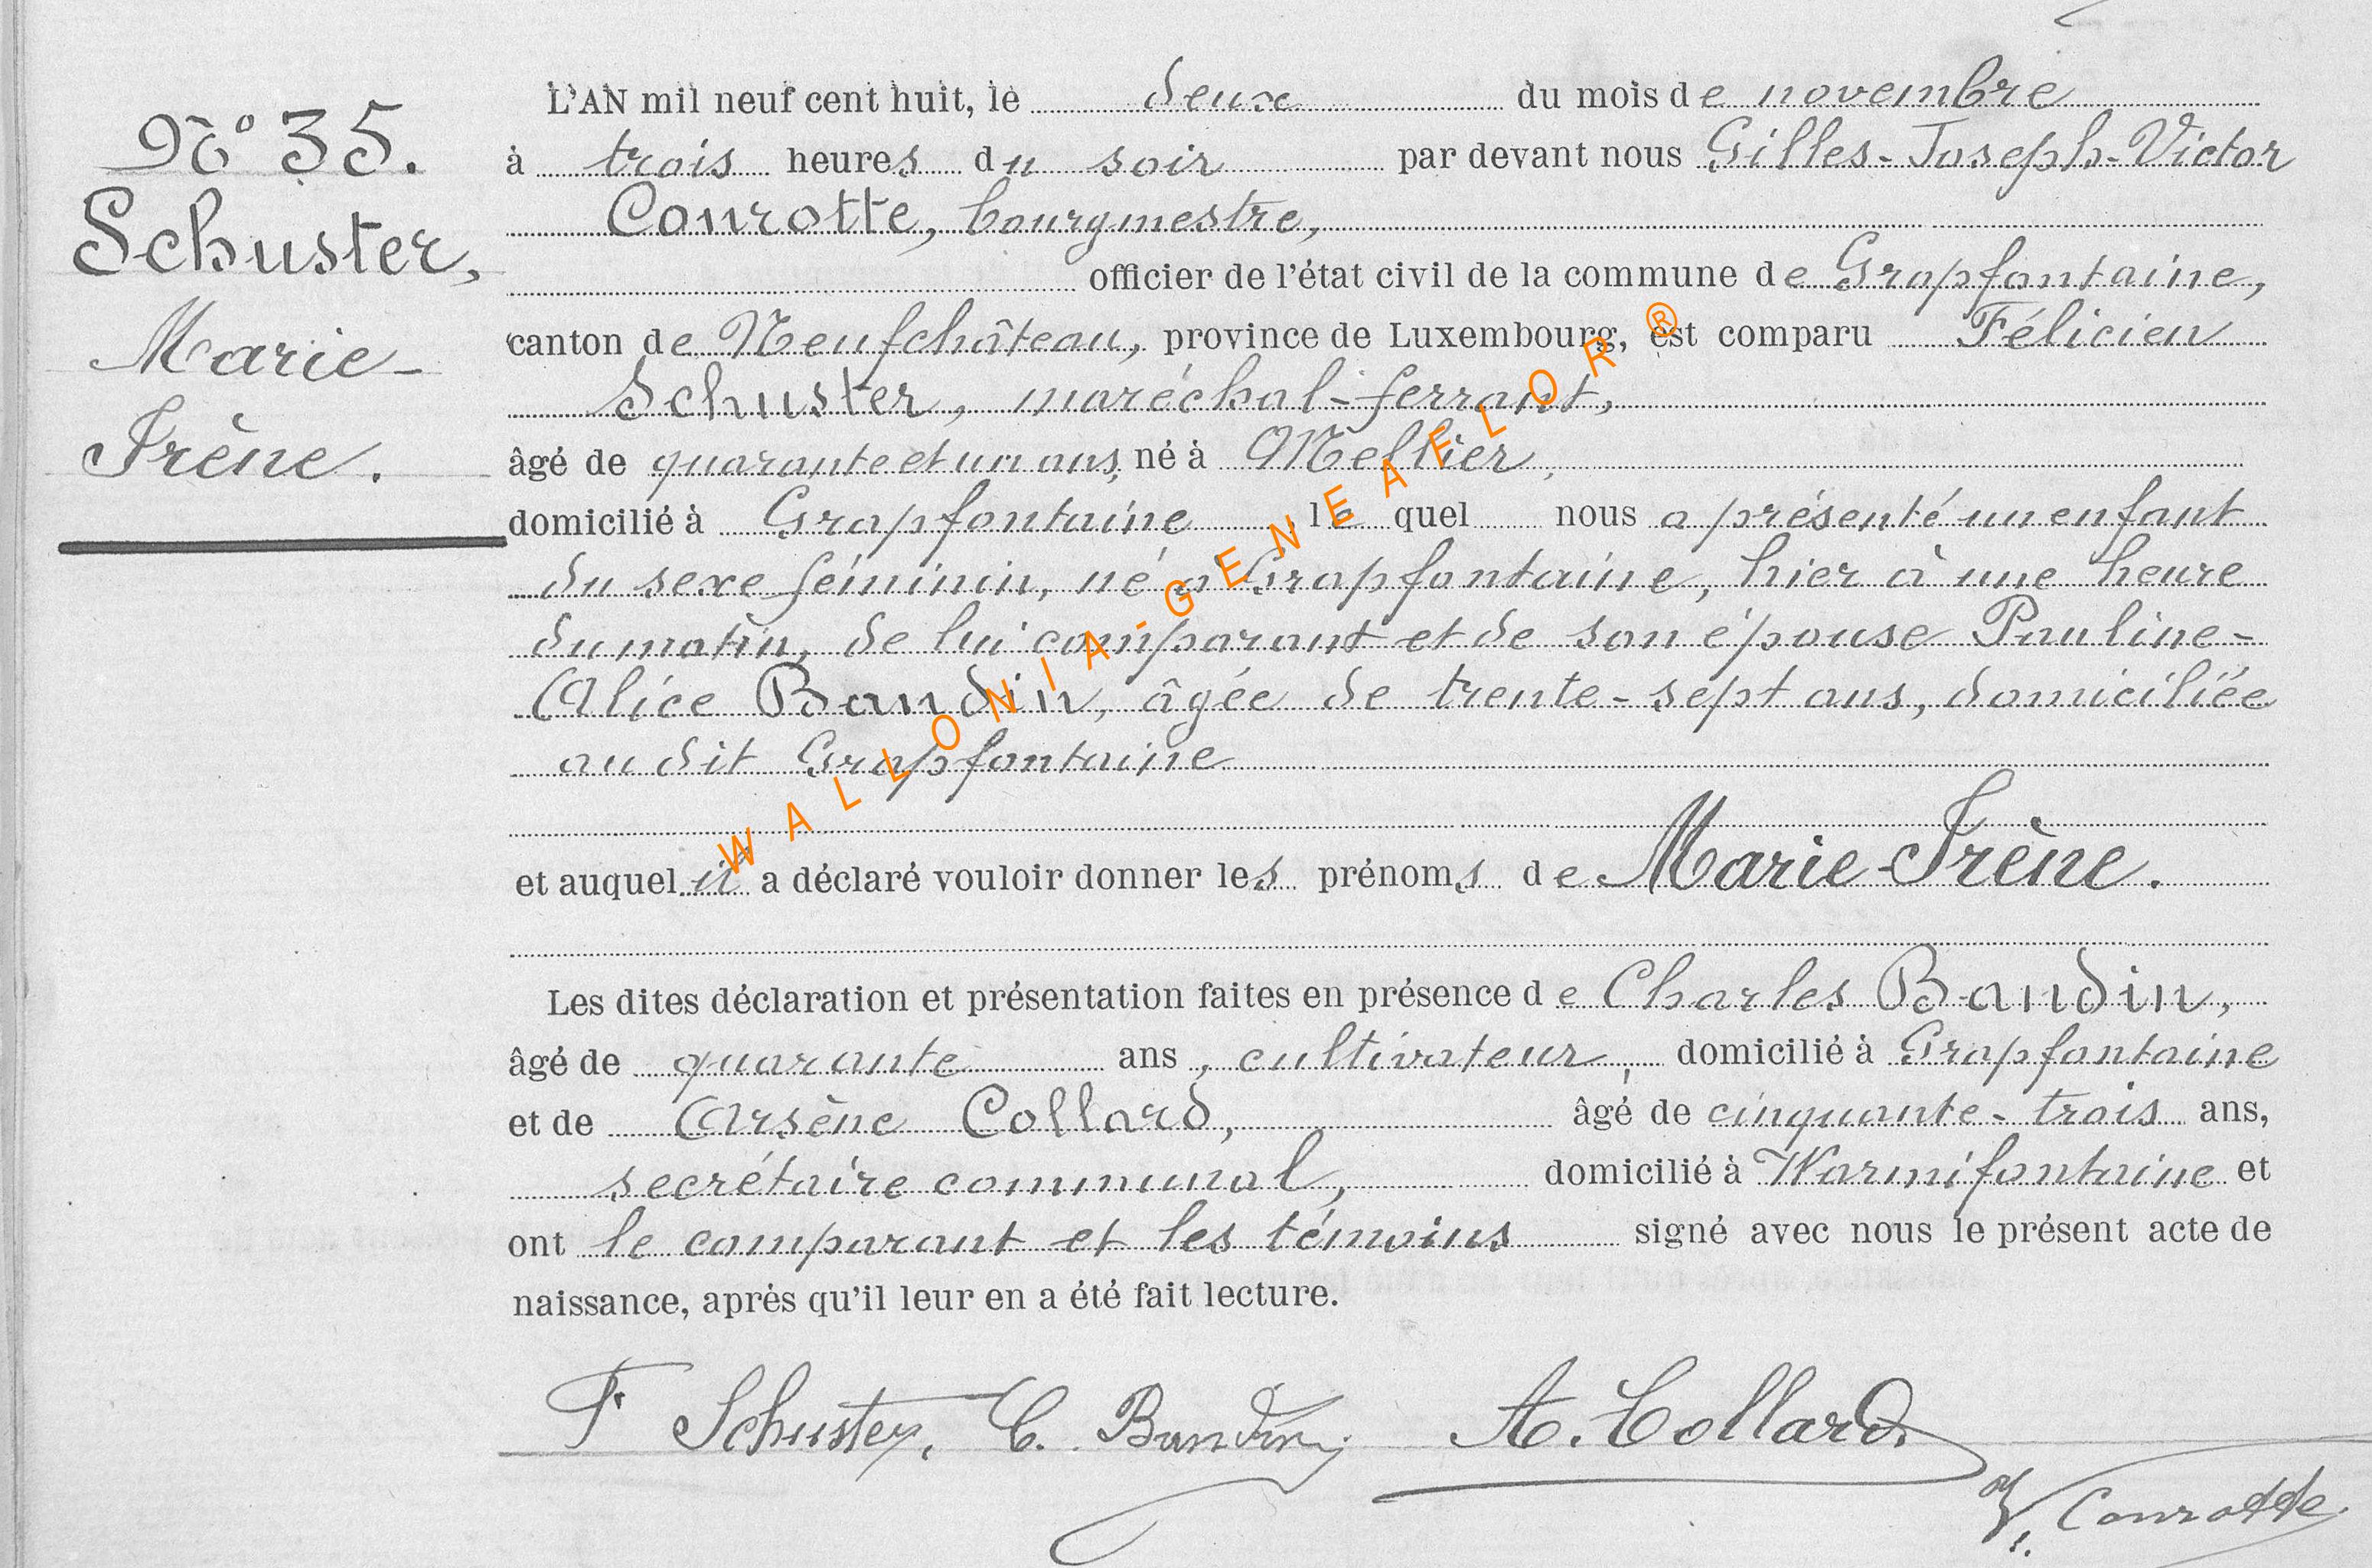 N° 35.
Schuster,
Marie-
Irène.
L'AN mil neuf cent huit, le deux du mois de novembre
à trois heures du soir par devant nous Gilles-Joseph-Victor
Conrotte, bourgmestre,
officier de l'état civil de la commune de Grapfontaine,
canton de Neufchâteau, province de Luxembourg, est comparu Félicien
Schuster, maréchal-ferrant,
âgé de quarante et un ans, né à Mellier,
domicilié à Grapfontaine, lequel nous a présenté un enfant
du sexe féminin, né à Grapfontaine, hier à une heure
du matin, de lui comparant et de son épouse Pauline-
Alice Baudin, âgée de trente-sept ans, domiciliée
au dit Grapfontaine
et auquel il a déclaré vouloir donner les prénoms de Marie-Irène.
Les dites déclaration et présentation faites en présence de Charles Baudin,
âgé de quarante ans, cultivateur, domicilié à Grapfontaine
et de Arsène Collard, âgé de cinquante-trois ans,
secrétaire communal, domicilié à Warmifontaine et
ont le comparant et les témoins signé avec nous le présent acte de
naissance, après qu'il leur en a été fait lecture.
F Schuster. C. Baudin A. Collard.
V. Conrotte
WALLONIA-GENEAFLOR®